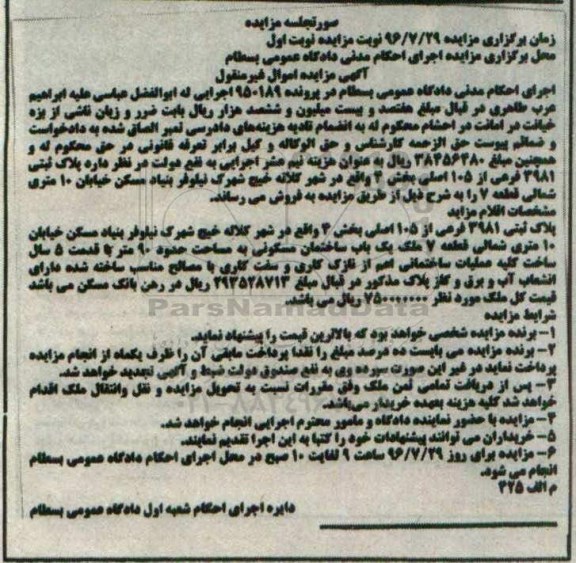 صورتجلسه مزایده
زمان برگزاری مزایده ۹۶/۷/۲۹ نوبت مزایده نوبت اول
محل برگزاری مزایده اجرای احکام مدنی دادگاه عمومی بسطام
آگهی مزایده اموال غیرمنقول
اجرای احکام مدنی دادگاه عمومی بسطام در پرونده ۹۵۰۱۸۹ اجرایی له ابوالفضل عباسی علیه ابراهیم
عرب طاهری در قبال مبلغ هفتصد و بیست میلیون و ششصد هزار ریال بابت ضرر و زیان ناشی از بزه
خیانت در امانت در احشام محکوم له به انضمام تادیه هزینه‌های دادرسی تمبر الصاق شده به دادخواست
و ضمائم پیوست حق الزحمه کارشناس و حق الوکاله وکیل برابر تعرفه قانونی در حق محکوم له و
همچنین مبلغ ۳۸۴۵۶۳۸۰ ریال به عنوان هزینه نیم عشر اجرایی به نفع دولت در نظر دارد پلاک ثبتی
۳۹۸۱ فرعی از ۱۰۵ اصلی بخش ۴ واقع در شهر کلاته خیج شهرک نیلوفر بنیاد مسکن خیابان ۱۰ متری
شمالی قطعه ۷ را به شرح ذیل از طریق مزایده به فروش می رساند.
مشخصات اقلام مزاید
پلاک ثبتی ۳۹۸۱ فرعی از ۱۰۵ اصلی بخش ۴ واقع در شهر کلاته خیج شهرک نیلوفر بنیاد مسکن خیابان
۱۰ متری شمالی قطعه ۷ ملک یک باب ساختمان مسکونی به مساحت حدود ۹۰ متر با قدمت ۵ سال
ساخت کلیه عملیات ساختمانی اعم از نازک کاری و سفت کاری با مصالح مناسب ساخته شده دارای
انشعاب آب و برق و گاز پلاک مذکور در قبال مبلغ ۲۹۳۵۲۸۷۱۳ ریال در رهن بانک مسکن می باشد
قیمت کل ملک مورد نظر ۷۵۰۰۰۰۰۰۰ ریال می باشد.
شرایط مزایده
۱- برنده مزایده شخصی خواهد بود که بالاترین قیمت را پیشنهاد نماید.
۲- برنده مزایده می بایست ده درصد مبلغ را نقدا پرداخت مابقی آن را ظرف یکماه از انجام مزایده
پرداخت نماید در غیر این صورت سپرده وی به نفع صندوق دولت ضبط و آگهی تجدید خواهد شد.
۳- پس از دریافت تمامی ثمن ملک وفق مقررات نسبت به تحویل مزایده و نقل وانتقال ملک اقدام
خواهد شد کلیه هزینه بعهده خریدار می‌باشد.
۴- مزایده با حضور نماینده دادگاه و مامور محترم اجرایی انجام خواهد شد.
۵- خریداران می توانند پیشنهادات خود را کتبا به این اجرا تقدیم نمایند.
۶- مزایده برای روز ۹۶/۷/۲۹ ساعت ۹ لغایت ۱۰ صبح در محل اجرای احکام دادگاه عمومی بسطام
انجام می شود.
م الف ۳۲۵
دایره اجرای احکام شعبه اول دادگاه عمومی بسطام
ParsNamadData